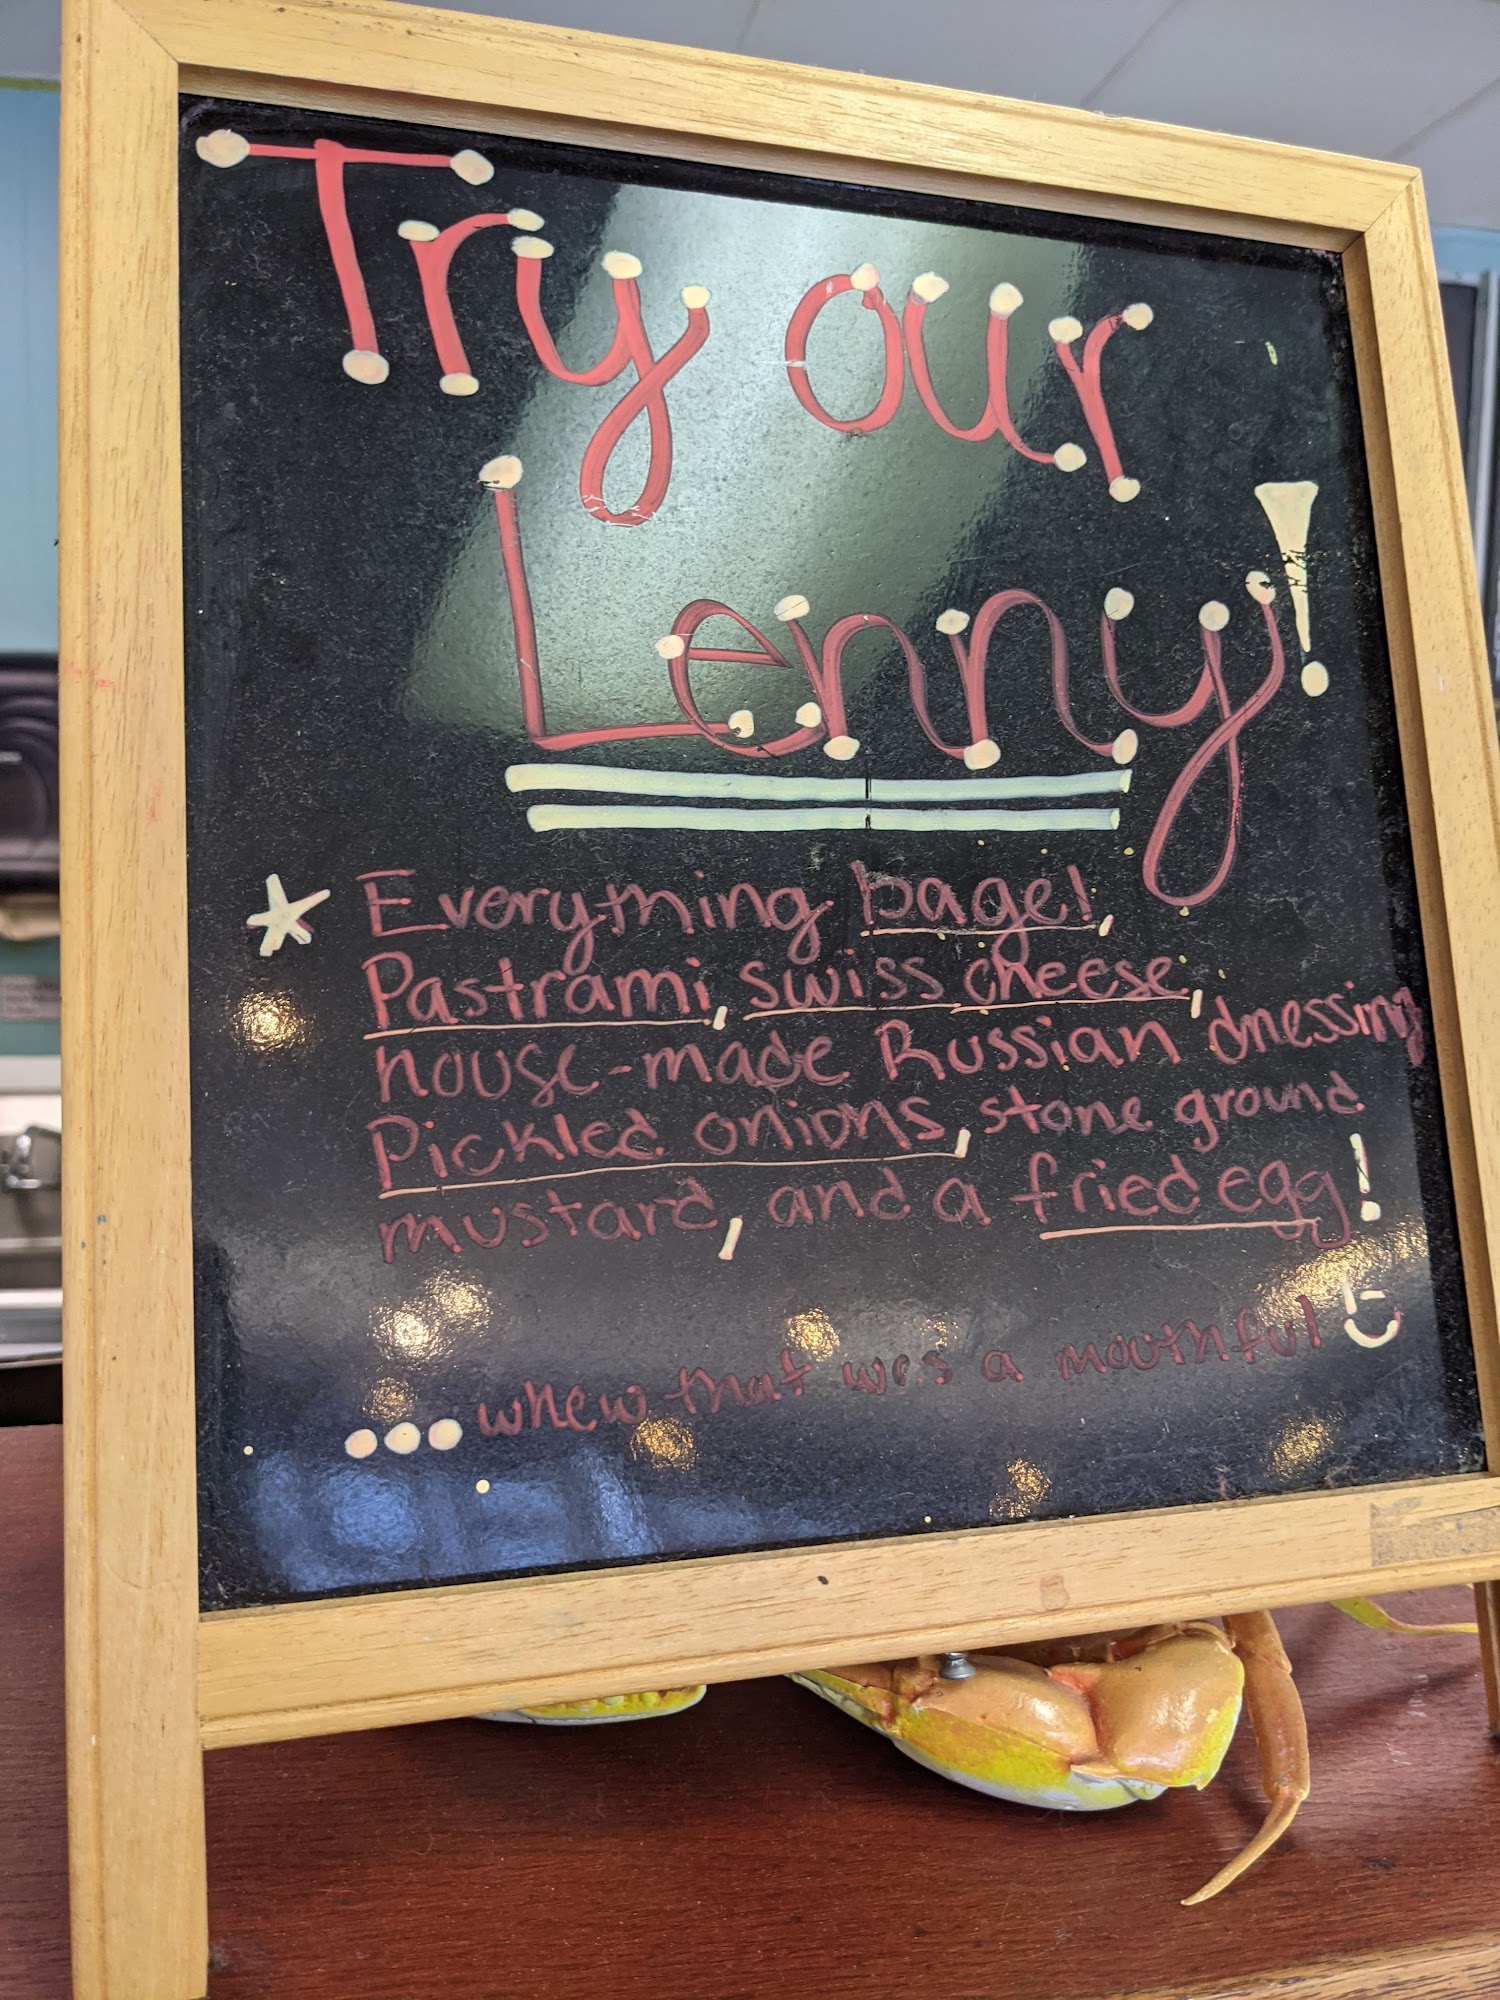 Try our
Lenny!
Everything bagel,
Pastrami, swiss cheese,
house-made Russian dressing
Pickled onions, stone ground
mustard, and a fried egg!
...whew that was a mouthful